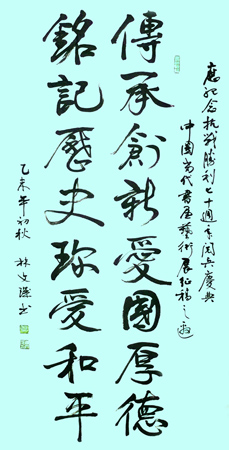 應紀念抗戰勝利七十週年閱兵慶典
中國當代書畫藝術展征稿之邀
傳承創新愛國厚德
銘記歷史珍愛和平
乙未年初秋 林文 書